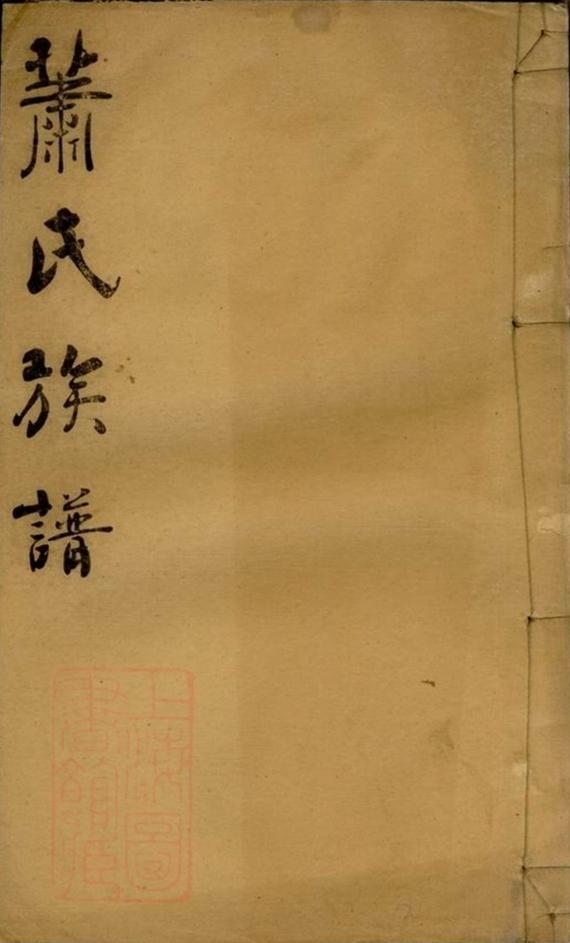 蕭氏族譜
上海圖
書館藏